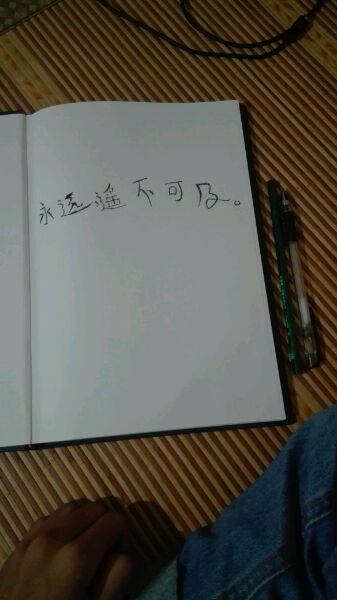 永远遥不可及。